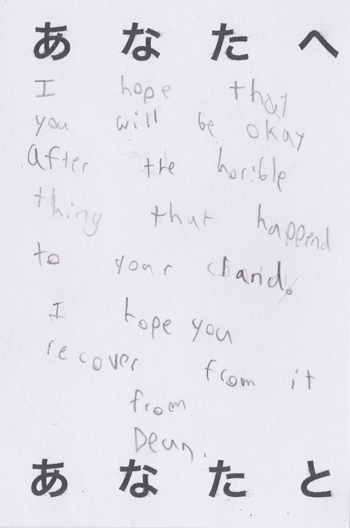 あなたへ
I hope that
you will be okay
after the horible
thing that happend
to your cland.
I hope you
recover from it
from
Dean.
あなたと